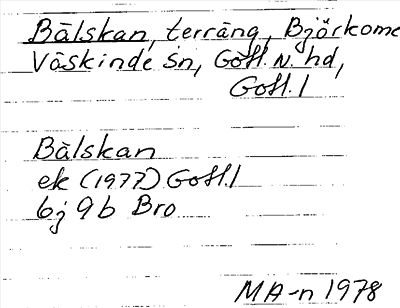 Bälskan, terräng, Björkome
Väskinde sn, Gotl. N. hd,
Gotl. l
Bälskan
ek (1977) Gotl. l
6j 9b Bro
MA-n 1978